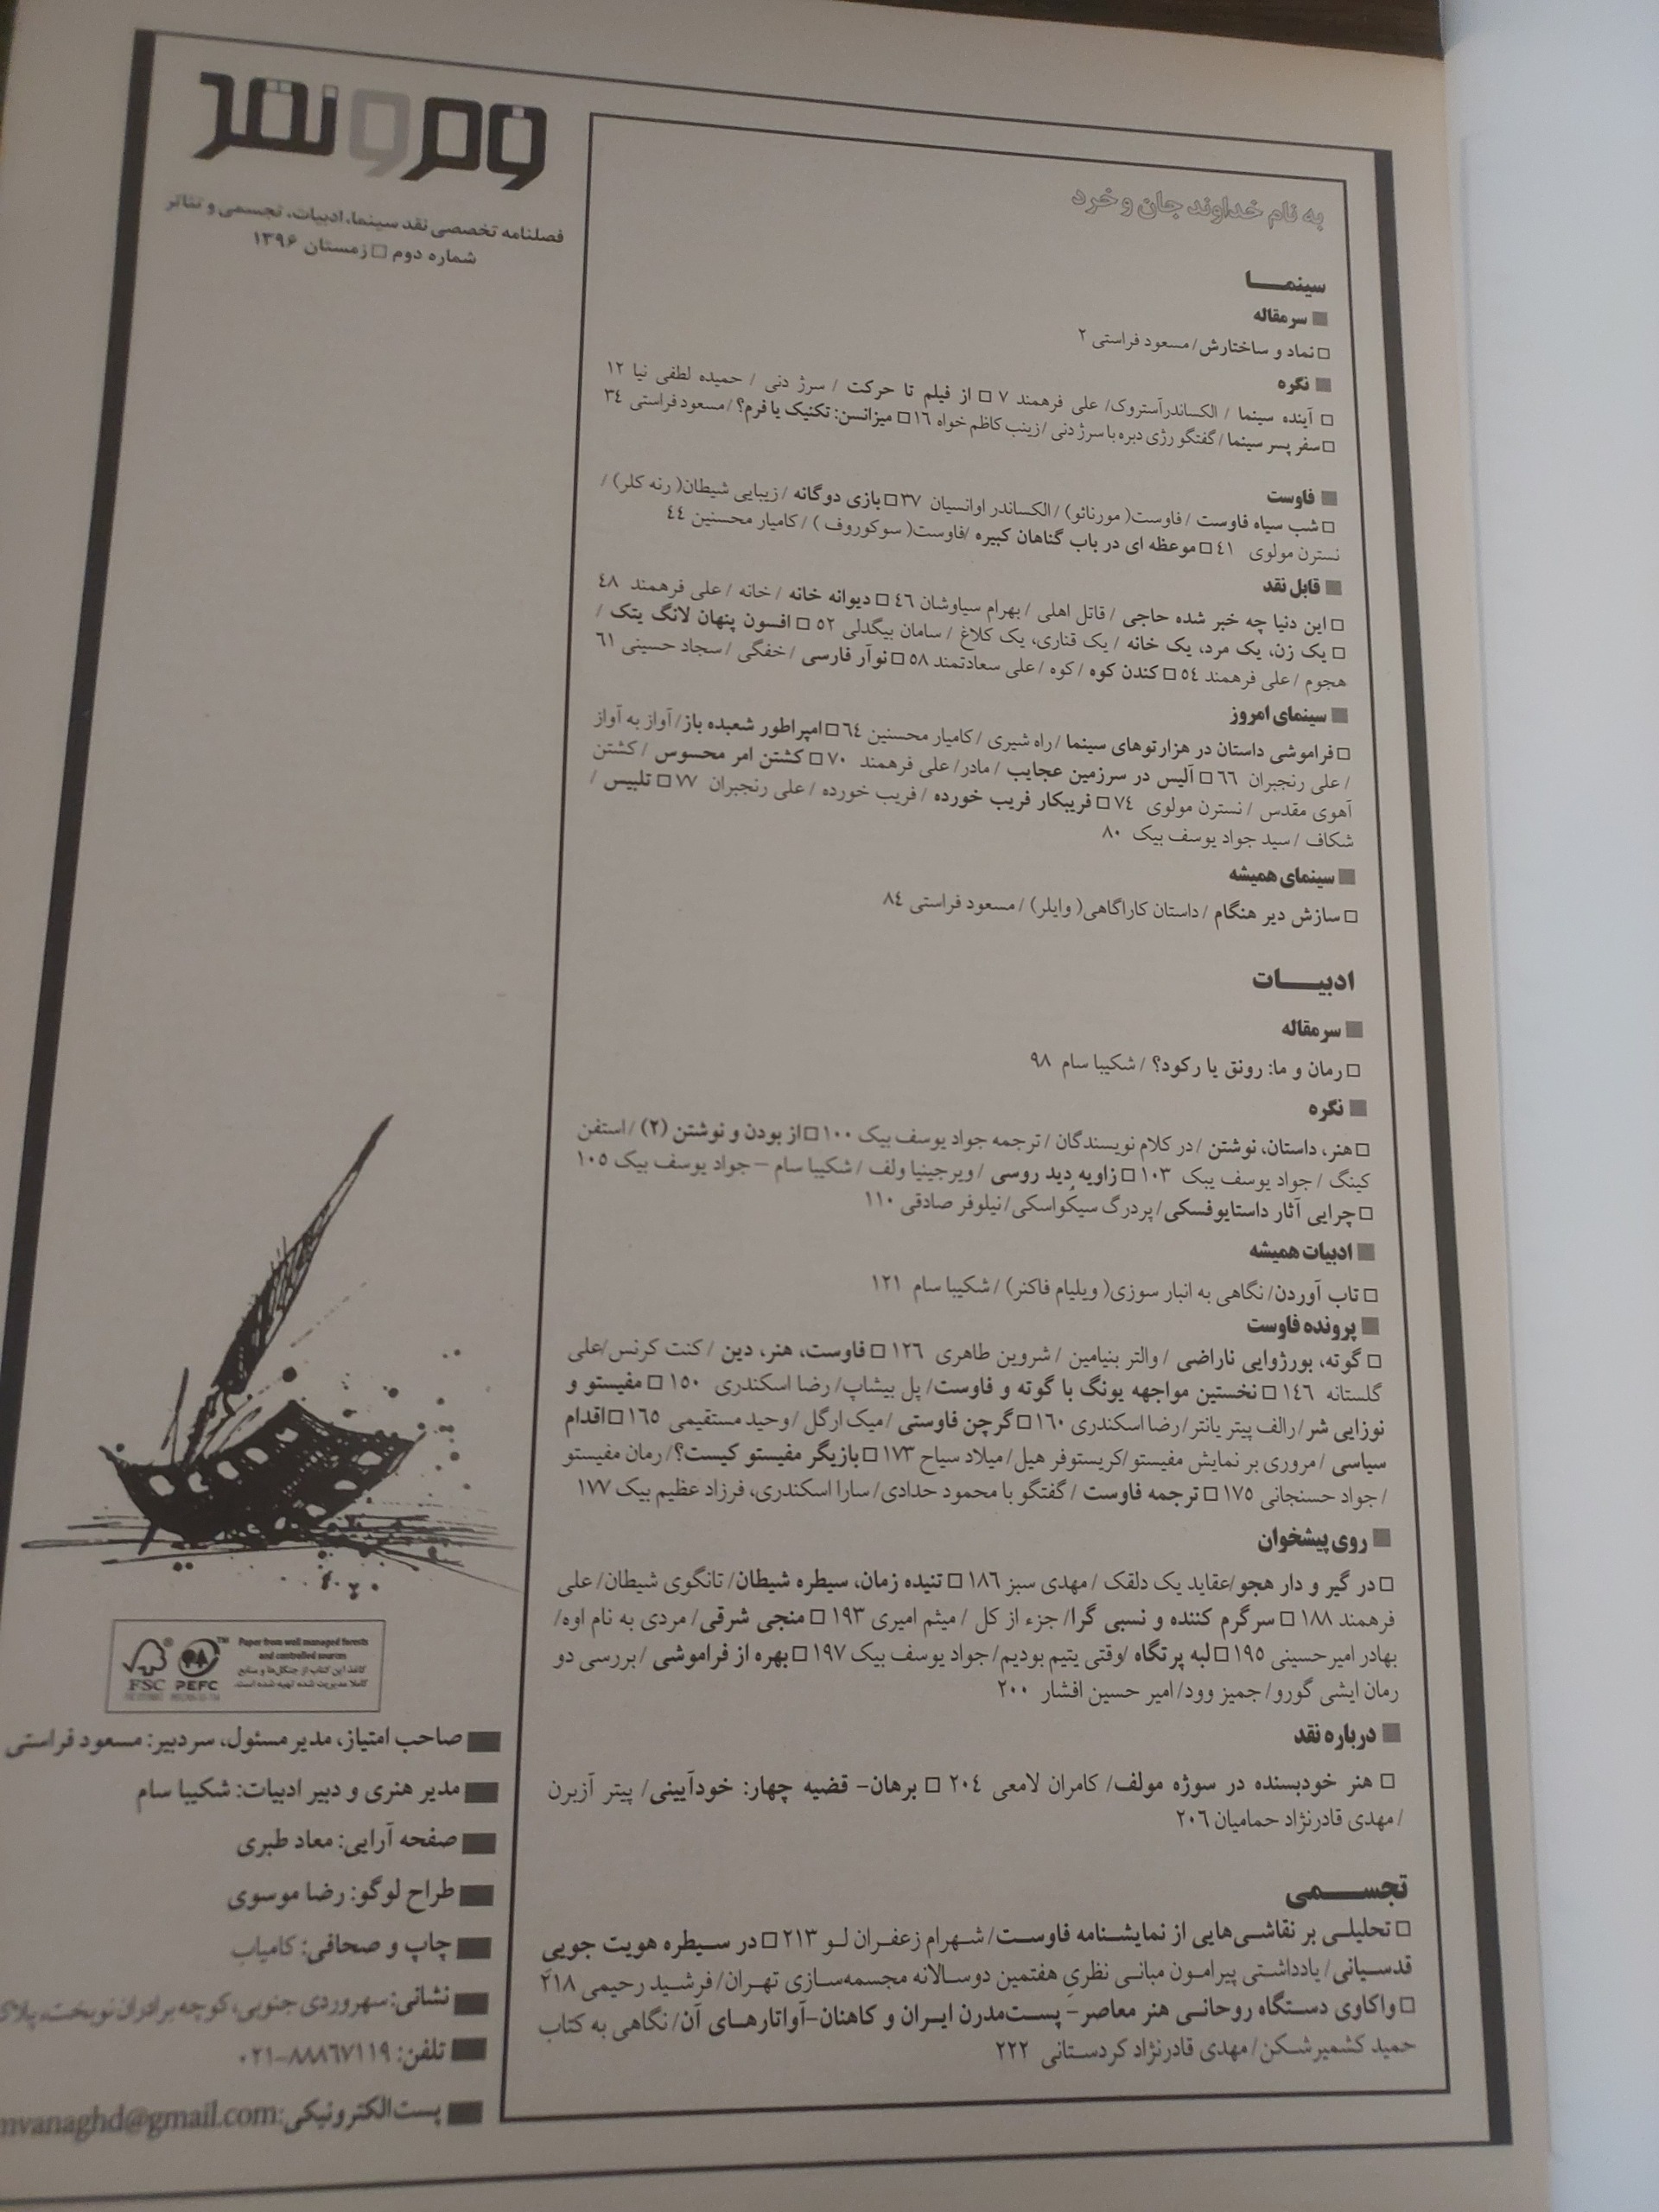 به نام خداوند جان و خرد
سینمــــا
سرمقاله
نماد و ساختارش/ مسعود فراستی ٢
نگره
آینده سینما / الکساندرآستروک/ علی فرهمند ٧ □ از فیلم تا حرکت / سرژ دنی / حمیده لطفی نیا ١٢
□ سفر پسر سینما / گفتگو رژی دبره با سرژ دنی / زینب کاظم خواه ١٦ □ میزانسن: تکنیک یا فرم؟ / مسعود فراستی ٣٤
فاوست
□ شب سیاه فاوست / فاوست( مورنائو) / الکساندر اوانسیان ٣٧ □ بازی دوگانه / زیبایی شیطان( رنه کلر) /
نسترن مولوی ٤١ □ موعظه ای در باب گناهان کبیره /فاوست( سوکوروف ) / کامیار محسنین ٤٤
قابل نقد
□ این دنیا چه خبر شده حاجی / قاتل اهلی / بهرام سیاوشان ٤٦ □ دیوانه خانه / خانه / علی فرهمند ٤٨
□ یک زن، یک مرد، یک خانه / یک قناری، یک کلاغ / سامان بیگدلی ٥٢ □ افسون پنهان لانگ یتک /
هجوم / علی فرهمند ٥٤ □ کندن کوه / کوه / علی سعادتمند ٥٨ □ نوآر فارسی / خفگی / سجاد حسینی ٦١
سینمای امروز
□ فراموشی داستان در هزارتوهای سینما / راه شیری / کامیار محسنین ٦٤ □ امپراطور شعبده باز/ آواز به آواز
/ علی رنجبران ٦٦ □ آلیس در سرزمین عجایب / مادر/ علی فرهمند ٧٠ □ کشتن امر محسوس / کشتن
آهوی مقدس / نسترن مولوی ٧٤ □ فریبکار فریب خورده / فریب خورده / علی رنجبران ٧٧ □ تلبیس /
شکاف / سید جواد یوسف بیک ٨٠
سینمای همیشه
□ سازش دیر هنگام / داستان کاراگاهی( وایلر) / مسعود فراستی ٨٤
ادبیـــــات
سرمقاله
□ رمان و ما: رونق یا رکود؟ / شکیبا سام ٩٨
نگره
□ هنر، داستان، نوشتن / در کلام نویسندگان / ترجمه جواد یوسف بیک ١٠٠ □ از بودن و نوشتن (٢) / استفن
کینگ / جواد یوسف بیک ١٠٣ □ زاویه دید روسی / ویرجینیا ولف / شکیبا سام – جواد یوسف بیک ١٠٥
□ چرایی آثار داستایوفسکی/ پردرگ سیکواسکی/ نیلوفر صادقی ١١٠
ادبیات همیشه
□ تاب آوردن/ نگاهی به انبار سوزی( ویلیام فاکنر) / شکیبا سام ١٢١
پرونده فاوست
□ گوته، بورژوایی ناراضی / والتر بنیامین / شروین طاهری ١٢٦ □ فاوست، هنر، دین / کنت کرنس/علی
گلستانه ١٤٦ □ نخستین مواجهه یونگ با گوته و فاوست/ پل بیشاپ/ رضا اسکندری ١٥٠ □ مفیستو و
نوزایی شر/ رالف پیتر یانتر/ رضا اسکندری ١٦٠ □ گرچن فاوستی / میک ارگل / وحید مستقیمی ١٦٥ □ اقدام
سیاسی / مروری بر نمایش مفیستو/کریستوفر هیل/ میلاد سیاح ١٧٣ □ بازیگر مفیستو کیست؟/ رمان مفیستو
/ جواد حسنجانی ١٧٥ □ ترجمه فاوست / گفتگو با محمود حدادی/ سارا اسکندری، فرزاد عظیم بیک ١٧٧
روی پیشخوان
□ در گیر و دار هجو/عقاید یک دلقک / مهدی سبز ١٨٦ □ تنیده زمان، سیطره شیطان/ تانگوی شیطان/ علی
فرهمند ١٨٨ □ سرگرم کننده و نسبی گرا/ جزء از کل / میثم امیری ١٩٣ □ منجی شرقی/ مردی به نام اوه/
بهادر امیرحسینی ١٩٥ □ لبه پرتگاه /وقتی یتیم بودیم/ جواد یوسف بیک ١٩٧ □ بهره از فراموشی / بررسی دو
رمان ایشی گورو/ جمیز وود/ امیر حسین افشار ٢٠٠
درباره نقد
□ هنر خودبسنده در سوژه مولف/ کامران لامعی ٢٠٤ □ برهان- قضیه چهار: خودآیینی/ پیتر آزبرن
/ مهدی قادرنژاد حمامیان ٢٠٦
تجســـــمی
□ تحلیلـی بر نقاشـی‌هایی از نمایشـنامه فاوسـت/ شـهرام زعفـران لـو ٢١٣ □ در سـیطره هویت جویی
قدسـیانی/ یادداشـتی پیرامـون مبانـی نظریِ هفتمین دوسـالانه مجسمه‌سـازی تهـران/ فرشـید رحیمی ٢١٨
□ واکاوی دسـتگاه روحانـی هنر معاصر- پسـت‌مدرن ایـران و کاهنان-آواتارهـای آن/ نگاهی به کتاب
حمید کشمیرشـکن/ مهدی قادرنژاد کردسـتانی ٢٢٢
فرم و نقد
فصلنامه تخصصی نقد سینما، ادبیات، تجسمی و تئاتر
شماره دوم □ زمستان ١٣٩۶
Paper from well managed forests
and controlled sources
کاغذ این کتاب از جنگل‌ها و منابع
کاملا مدیریت شده تهیه شده است.
FSC PEFC
صاحب امتیاز، مدیر مسئول، سردبیر: مسعود فراستی
مدیر هنری و دبیر ادبیات: شکیبا سام
صفحه آرایی: معاد طبری
طراح لوگو: رضا موسوی
چاپ و صحافی: کامیاب
نشانی: سهروردی جنوبی، کوچه برادران نوبخت، پلاک
تلفن: ٨٨٨٦٧١١٩-٠٢١
پست الکترونیکی: mvanaghd@gmail.com